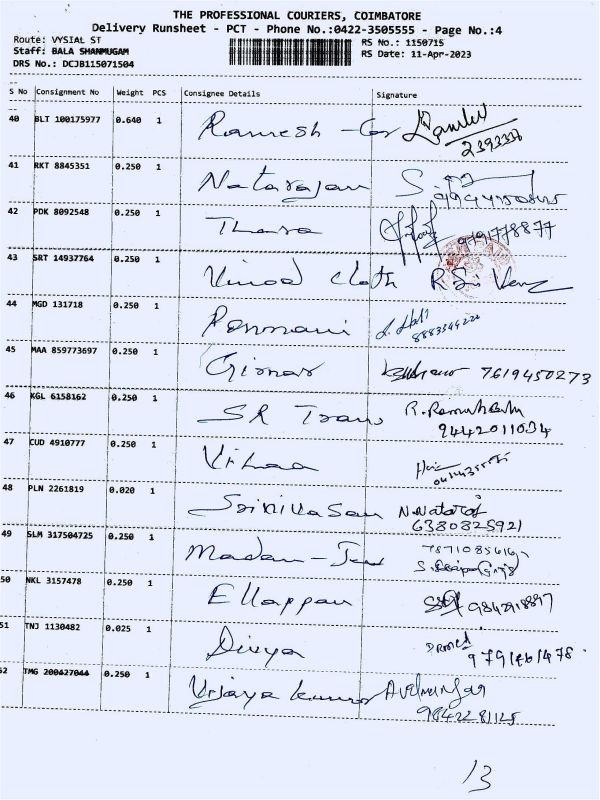 THE PROFESSIONAL COURIERS, COIMBATORE
Delivery Runsheet - PCT - Phone No.:0422-3505555 - Page No.:4
Route: VYSIAL ST RS No.: 1150715
Staff: BALA SHANMUGAM RS Date: 11-Apr-2023
DRS No.: DCJB115071504
S No Consignment No Weight PCS Consignee Details Signature
40 BLT 100175977 0.640 1 Ramesh
41 RKT 8845351 0.250 1 Natarajan
42 PDK 8092548 0.250 1 Thara 9791778877
43 SRT 14937764 0.250 1 Vinod Cloth
44 MGD 131718 0.250 1 Ponmani
45 MAA 859773697 0.250 1 Girnar 7619450273
46 KGL 6158162 0.250 1 SR Trans
9442011034
47 CUD 4910777 0.250 1
48 PLN 2261819 0.020 1 Srinivasan N.Nataraj
6380825921
49 SLM 317504725 0.250 1 Madam
50 NKL 3157478 0.250 1 Ellappan
51 TNJ 1130482 0.025 1 Divya
52 TMG 200427044 0.250 1 Vijaya Kumar
13